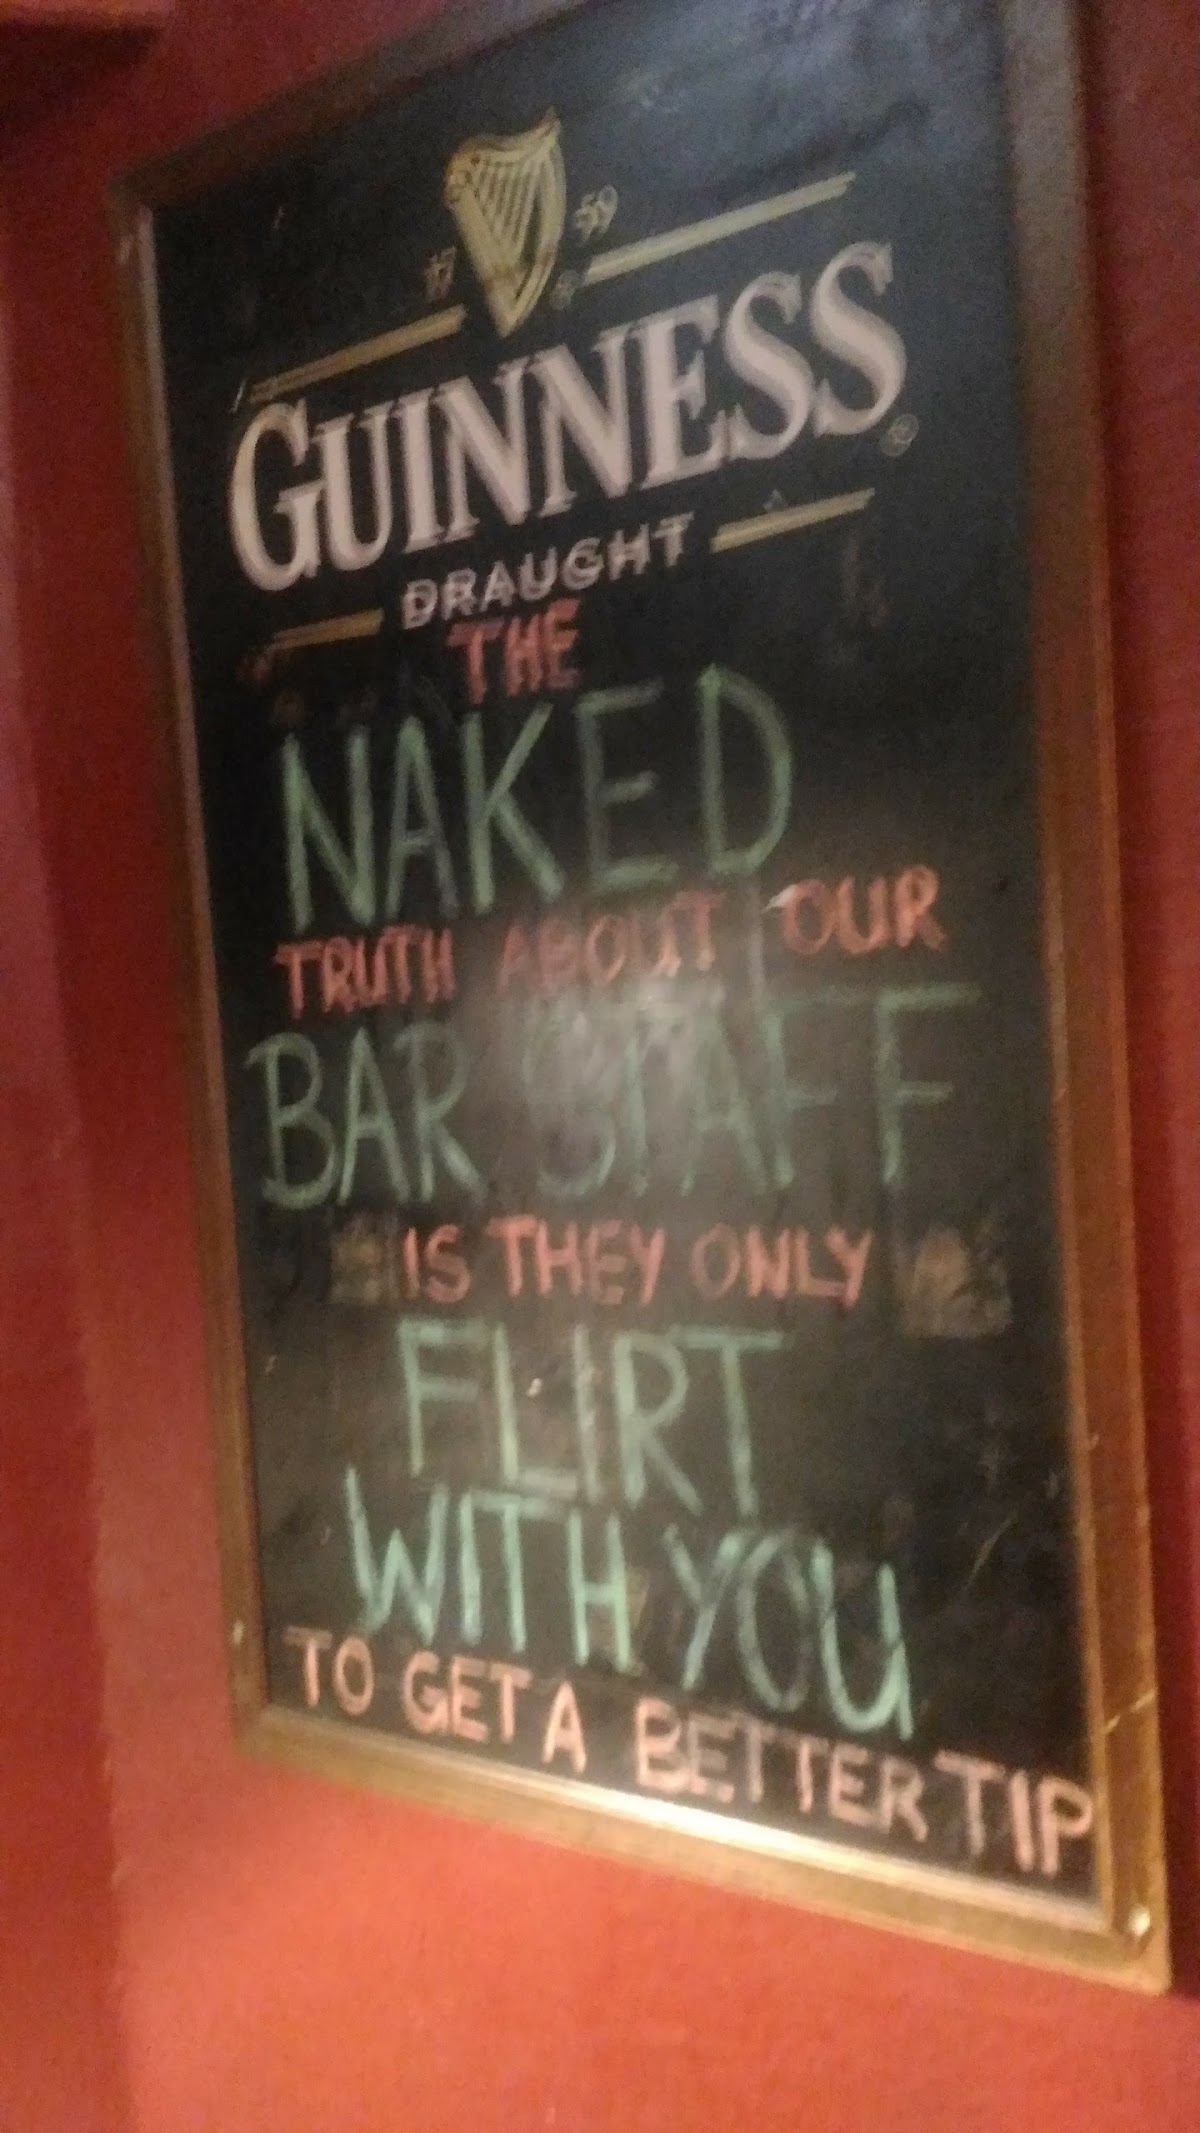 17 59
GUINNESS®
DRAUGHT
THE
NAKED
TRUTH ABOUT OUR
BAR STAFF
IS THEY ONLY
FLIRT
WITH YOU
TO GET A BETTER TIP